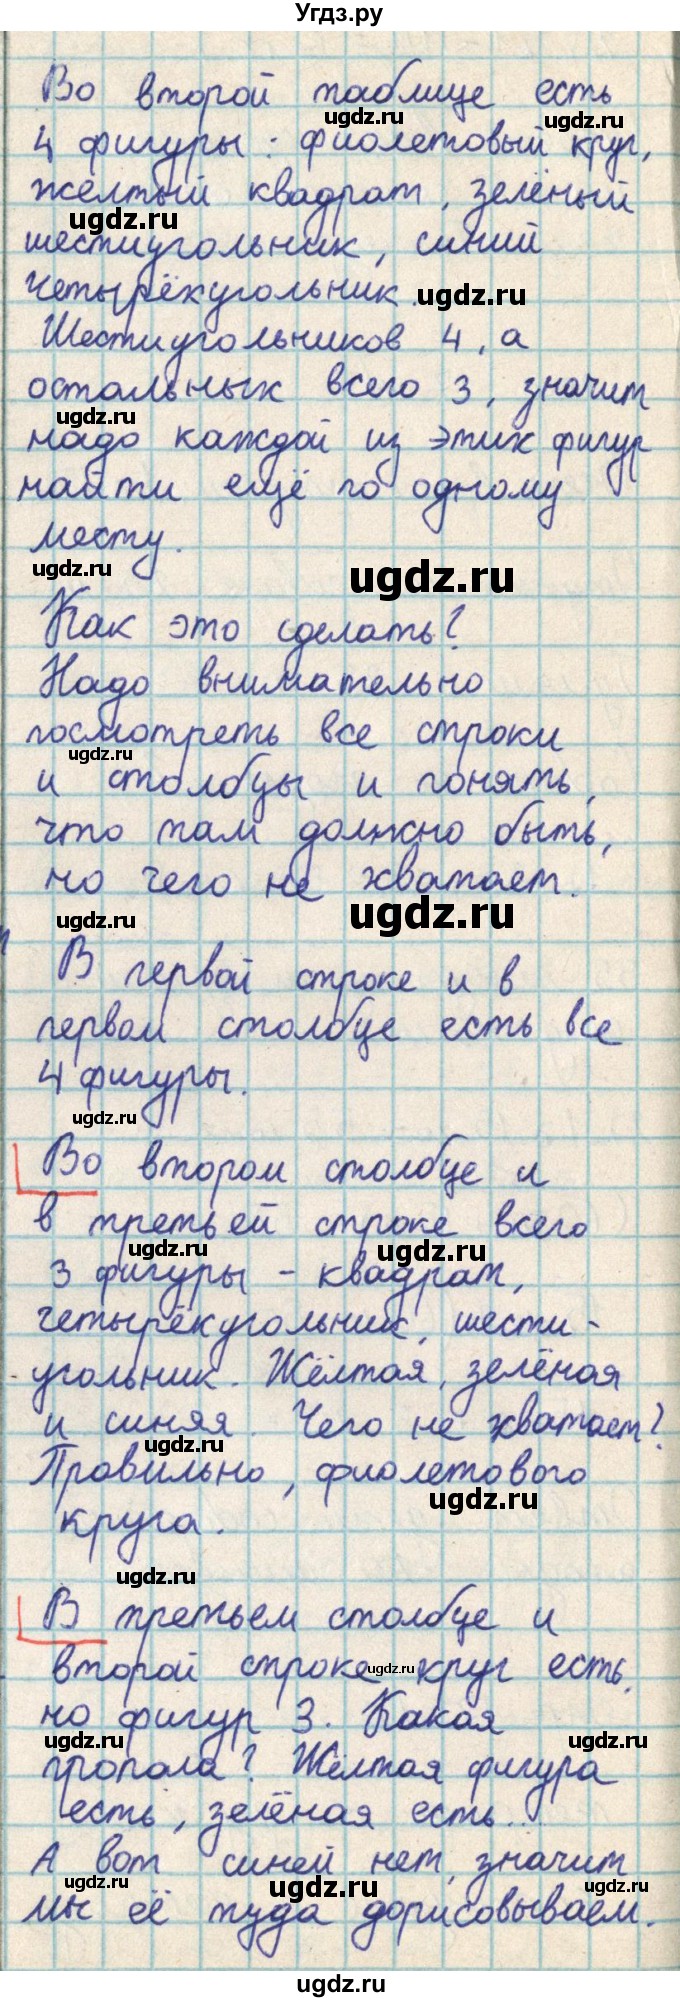 Угдз.ру
Во второй таблице есть
4 фигуры: фиолетовый круг,
жёлтый квадрат, зелёный
шестиугольник, синий
четырёхугольник.
Шестиугольников 4, а
остальных всего 3, значит
надо каждой из этих фигур
найти ещё по одному
месту.
Как это сделать?
Надо внимательно
посмотреть все строки
и столбцы и понять,
что там должно быть,
но чего не хватает.
В первой строке и в
первом столбце есть все
4 фигуры.
Во втором столбце и
в третьей строке всего
3 фигуры - квадрат,
четырёхугольник, шести-
угольник. Жёлтая, зелёная
и синяя. Чего не хватает?
Правильно, фиолетового
круга.
В третьем столбце и
второй строке круг есть,
но фигур 3. Какая
пропала? Жёлтая фигура
есть, зелёная есть...
А вот синей нет, значит
мы её туда дорисовываем.
ugdz.ru